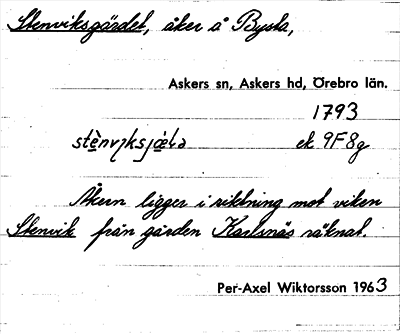 Stenviksgärdet, åker å Bysta,
Askers sn, Askers hd, Örebro län.
1793
stènvιksjæ̀ḷə ek 9F8g
Åkern ligger i riktning mot viken
Stenvik från gården Karlsnäs räknat.
Per-Axel Wiktorsson 1963